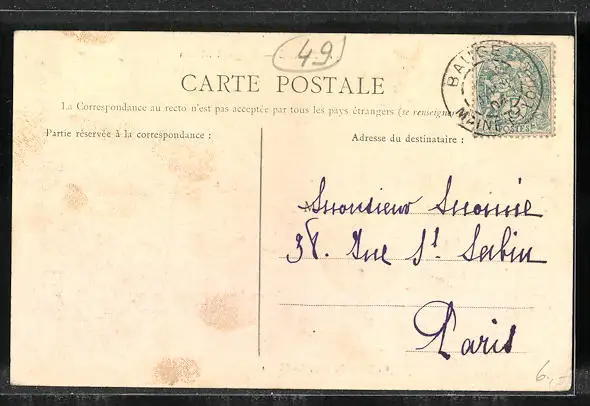 49
CARTE POSTALE
La Correspondance au recto n'est pas acceptée par tous les pays étrangers (se renseigner
Partie réservée à la correspondance :
Adresse du destinataire :
BAUGE
MAINE
POSTES
Monsieur
38. Rue St Sabin
Paris